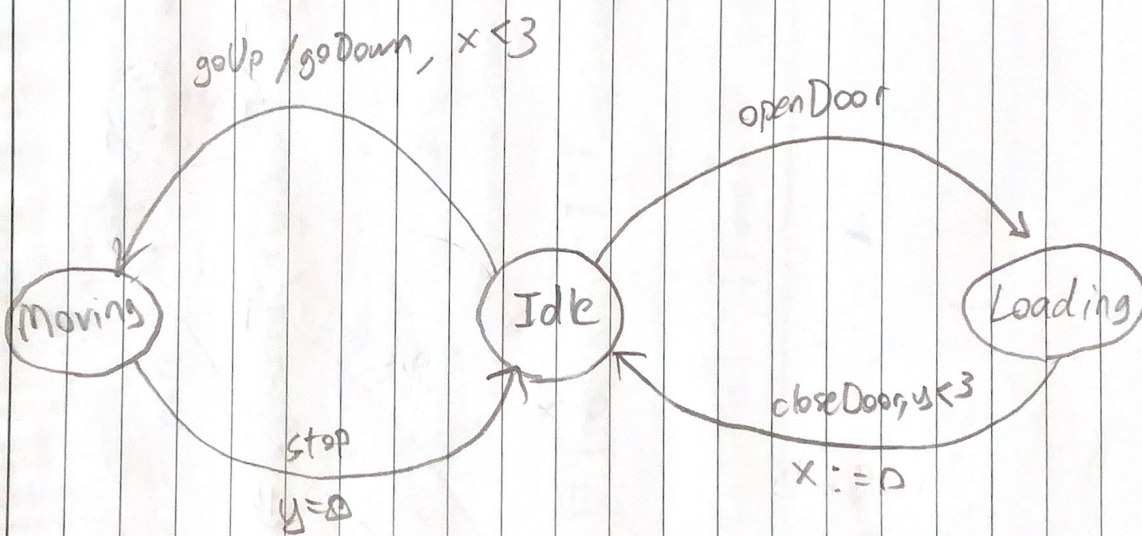 goUp / goDown, x < 3
openDoor
Moving
Idle
Loading
closeDoor, y < 3
x := 0
stop
y = 0